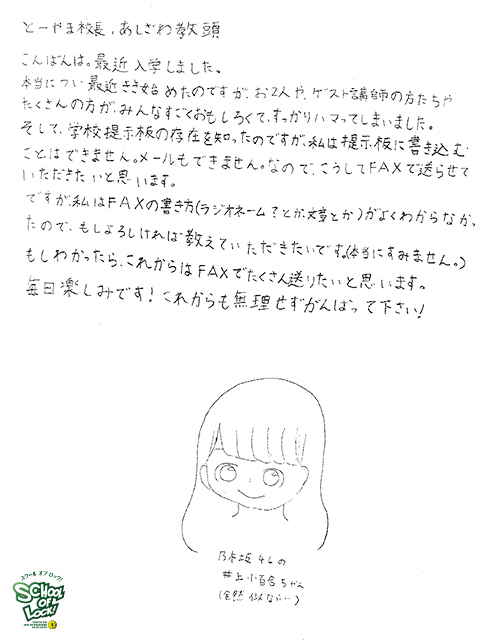 とーやま校長、あしざわ教頭
こんばんは。最近入学しました。
本当につい最近きき始めたのですが、お2人や、ゲスト講師の方たちや
たくさんの方が、みんなすごくおもしろくて、すっかりハマってしまいました。
そして、学校掲示板の存在を知ったのですが、私は掲示板に書き込む
ことはできません。メールもできません。なので、こうしてFAXで送らせて
いただきたいと思います。
ですが、私はFAXの書き方(ラジオネーム?とか、文章とか)がよくわからなかっ
たので、もしよろしければ教えていただきたいです。(本当にすみません。)
もしわかったら、これからはFAXでたくさん送りたいと思います。
毎日楽しみです!これからも無理せずがんばって下さい!
乃木坂46の
井上小百合ちゃん
(全然似ない…)
スクール オブ ロック!
SCHOOL
OF
LOCK!